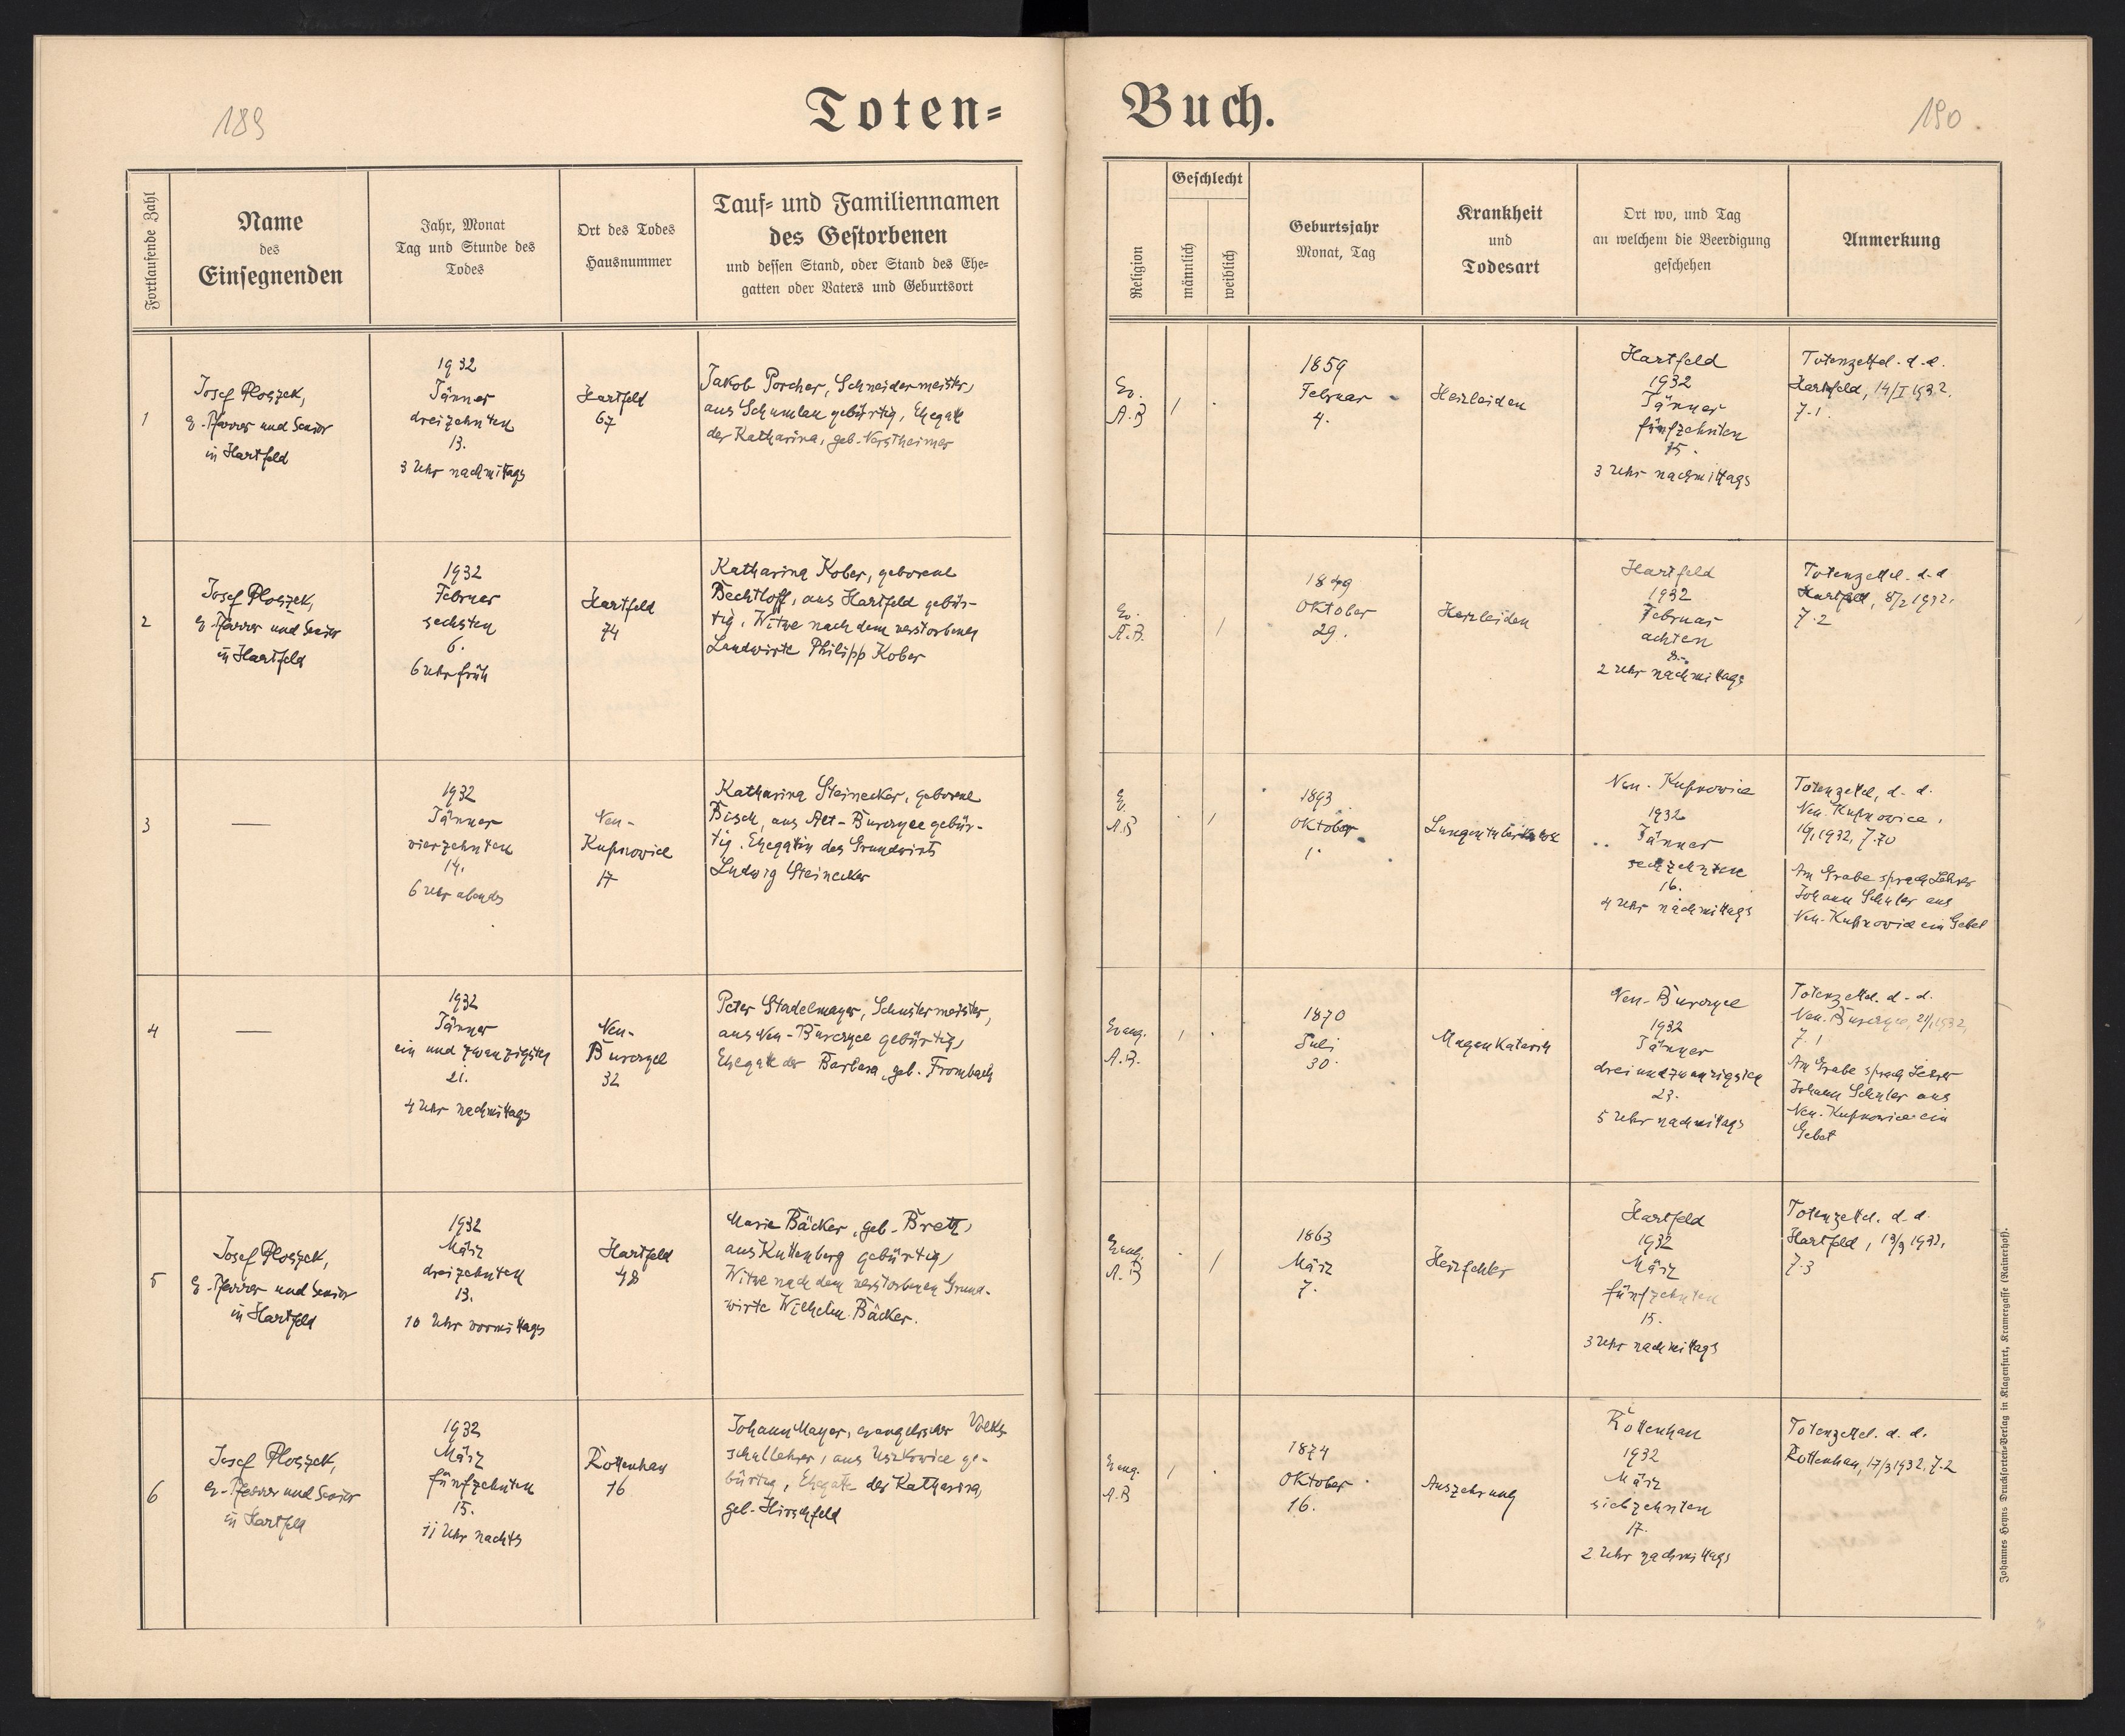 189
Toten=
Fortlaufende Zahl
Name
des
Einsegnenden
Jahr, Monat
Tag und Stunde des
Todes
Ort des Todes
Hausnummer
Tauf= und Familiennamen
des Gestorbenen
und dessen Stand, oder Stand des Ehe=
gatten oder Vaters und Geburtsort
1
Josef Ploszek,
e. Pfarrer und Senior
in Hartfeld
1932
Jänner
dreizehnten
13.
3 Uhr nachmittags
Hartfeld
67
Jakob Porcher, Schneidermeister,
aus Schumlau gebürtig, Ehegatte
der Katharina, geb.
2
Josef Ploszek,
e. Pfarrer und Senior
in Hartfeld
1932
Februar
sechsten
6.
6 Uhr früh
Hartfeld
74
Katharina Kober, geborene
Bechtloff, aus Hartfeld gebür-
tig, Witwe nach dem verstorbenen
Landwirte Philipp Kober
3
—
1932
Jänner
vierzehnten
14.
6 Uhr abends
Neu-
Kupnowice
17
Katharina Steinecker, geborene
Bisch, aus Alt-Burczyce gebür-
tig. Ehegattin des Grundwirts
Ludwig Steinecker
4
—
1932
Jänner
ein und zwanzigsten
21.
4 Uhr nachmittags
Neu-
Burczyce
32
Peter Stadelmayer, Schustermeister,
aus Neu-Burczyce gebürtig,
Ehegatte der Barbara, geb. Frombach
5
Josef Ploszek,
e. Pfarrer und Senior
in Hartfeld
1932
März
dreizehnten
13.
10 Uhr vormittags
Hartfeld
48
Marie Bäcker, geb. Bretz,
aus Kuttenberg gebürtig,
Witwe nach dem verstorbenen Grund-
wirte Wilhelm Bäcker.
6
Josef Ploszek,
e. Pfarrer und Senior
in Hartfeld
1932
März
fünfzehnten
15.
11 Uhr nachts
Rottenhan
16
Johann Mayer, evangelischer Volks-
schullehrer, aus Uszkowice ge-
bürtig, Ehegatte der Katharina,
geb. Hirschfeld
Buch.
190
Religion
Geschlecht
männlich
weiblich
Geburtsjahr
Monat, Tag
Krankheit
und
Todesart
Ort wo, und Tag
an welchem die Beerdigung
geschehen
Anmerkung
Ev.
A.B
1
1859
Februar
4.
Herzleiden
Hartfeld
1932
Jänner
fünfzehnten
15.
3 Uhr nachmittags
Totenzettel. d.d.
Hartfeld, 14/I 1932.
Z.1.
Ev.
A.B.
1
1849
Oktober
29.
Herzleiden
Hartfeld
1932
Februar
achten
8.
2 Uhr nachmittags
Totenzettel. d.d
Hartfeld, 8/2 1932.
Z.2
Ev.
A.B
1
1893
Oktober
1.
Lungentuberkulose
Neu-Kupnowice
1932
Jänner
sechzehnten
16.
4 Uhr nachmittags
Totenzettel, d.d.
Neu-Kupnowice,
1932, Z.70
Am Grabe sprach Lehrer
Johann Schuler aus
Neu-Kupnowice ein Gebet
Evang.
A.B.
1
1870
Juli
30.
Magenkatarrh
Neu-Burczyce
1932
Jänner
dreiundzwanzigsten
23.
5 Uhr nachmittags
Totenzettel. d.d.
Neu-Burczyce, 21/1 1932,
Z.1
Am Grabe sprach Lehrer
Johann Schuler aus
Neu-Kupnowice ein
Gebet
Evang.
A.B
1
1863
März
7.
Herzfehler
Hartfeld
1932
März
fünfzehnten
15.
3 Uhr nachmittags
Totenzettel. d.d.
Hartfeld, 13/3 1932.
Z.3
Evang.
A.B
1
1874
Oktober
16.
Auszehrung
Rottenhan
1932
März
siebzehnten
17.
2 Uhr nachmittags
Totenzettel. d.d.
Rottenhan, 17/3 1932. Z.2
Johannes Heyns Drucksorten=Verlag in Klagenfurt, Kramergasse (Rainerhof).